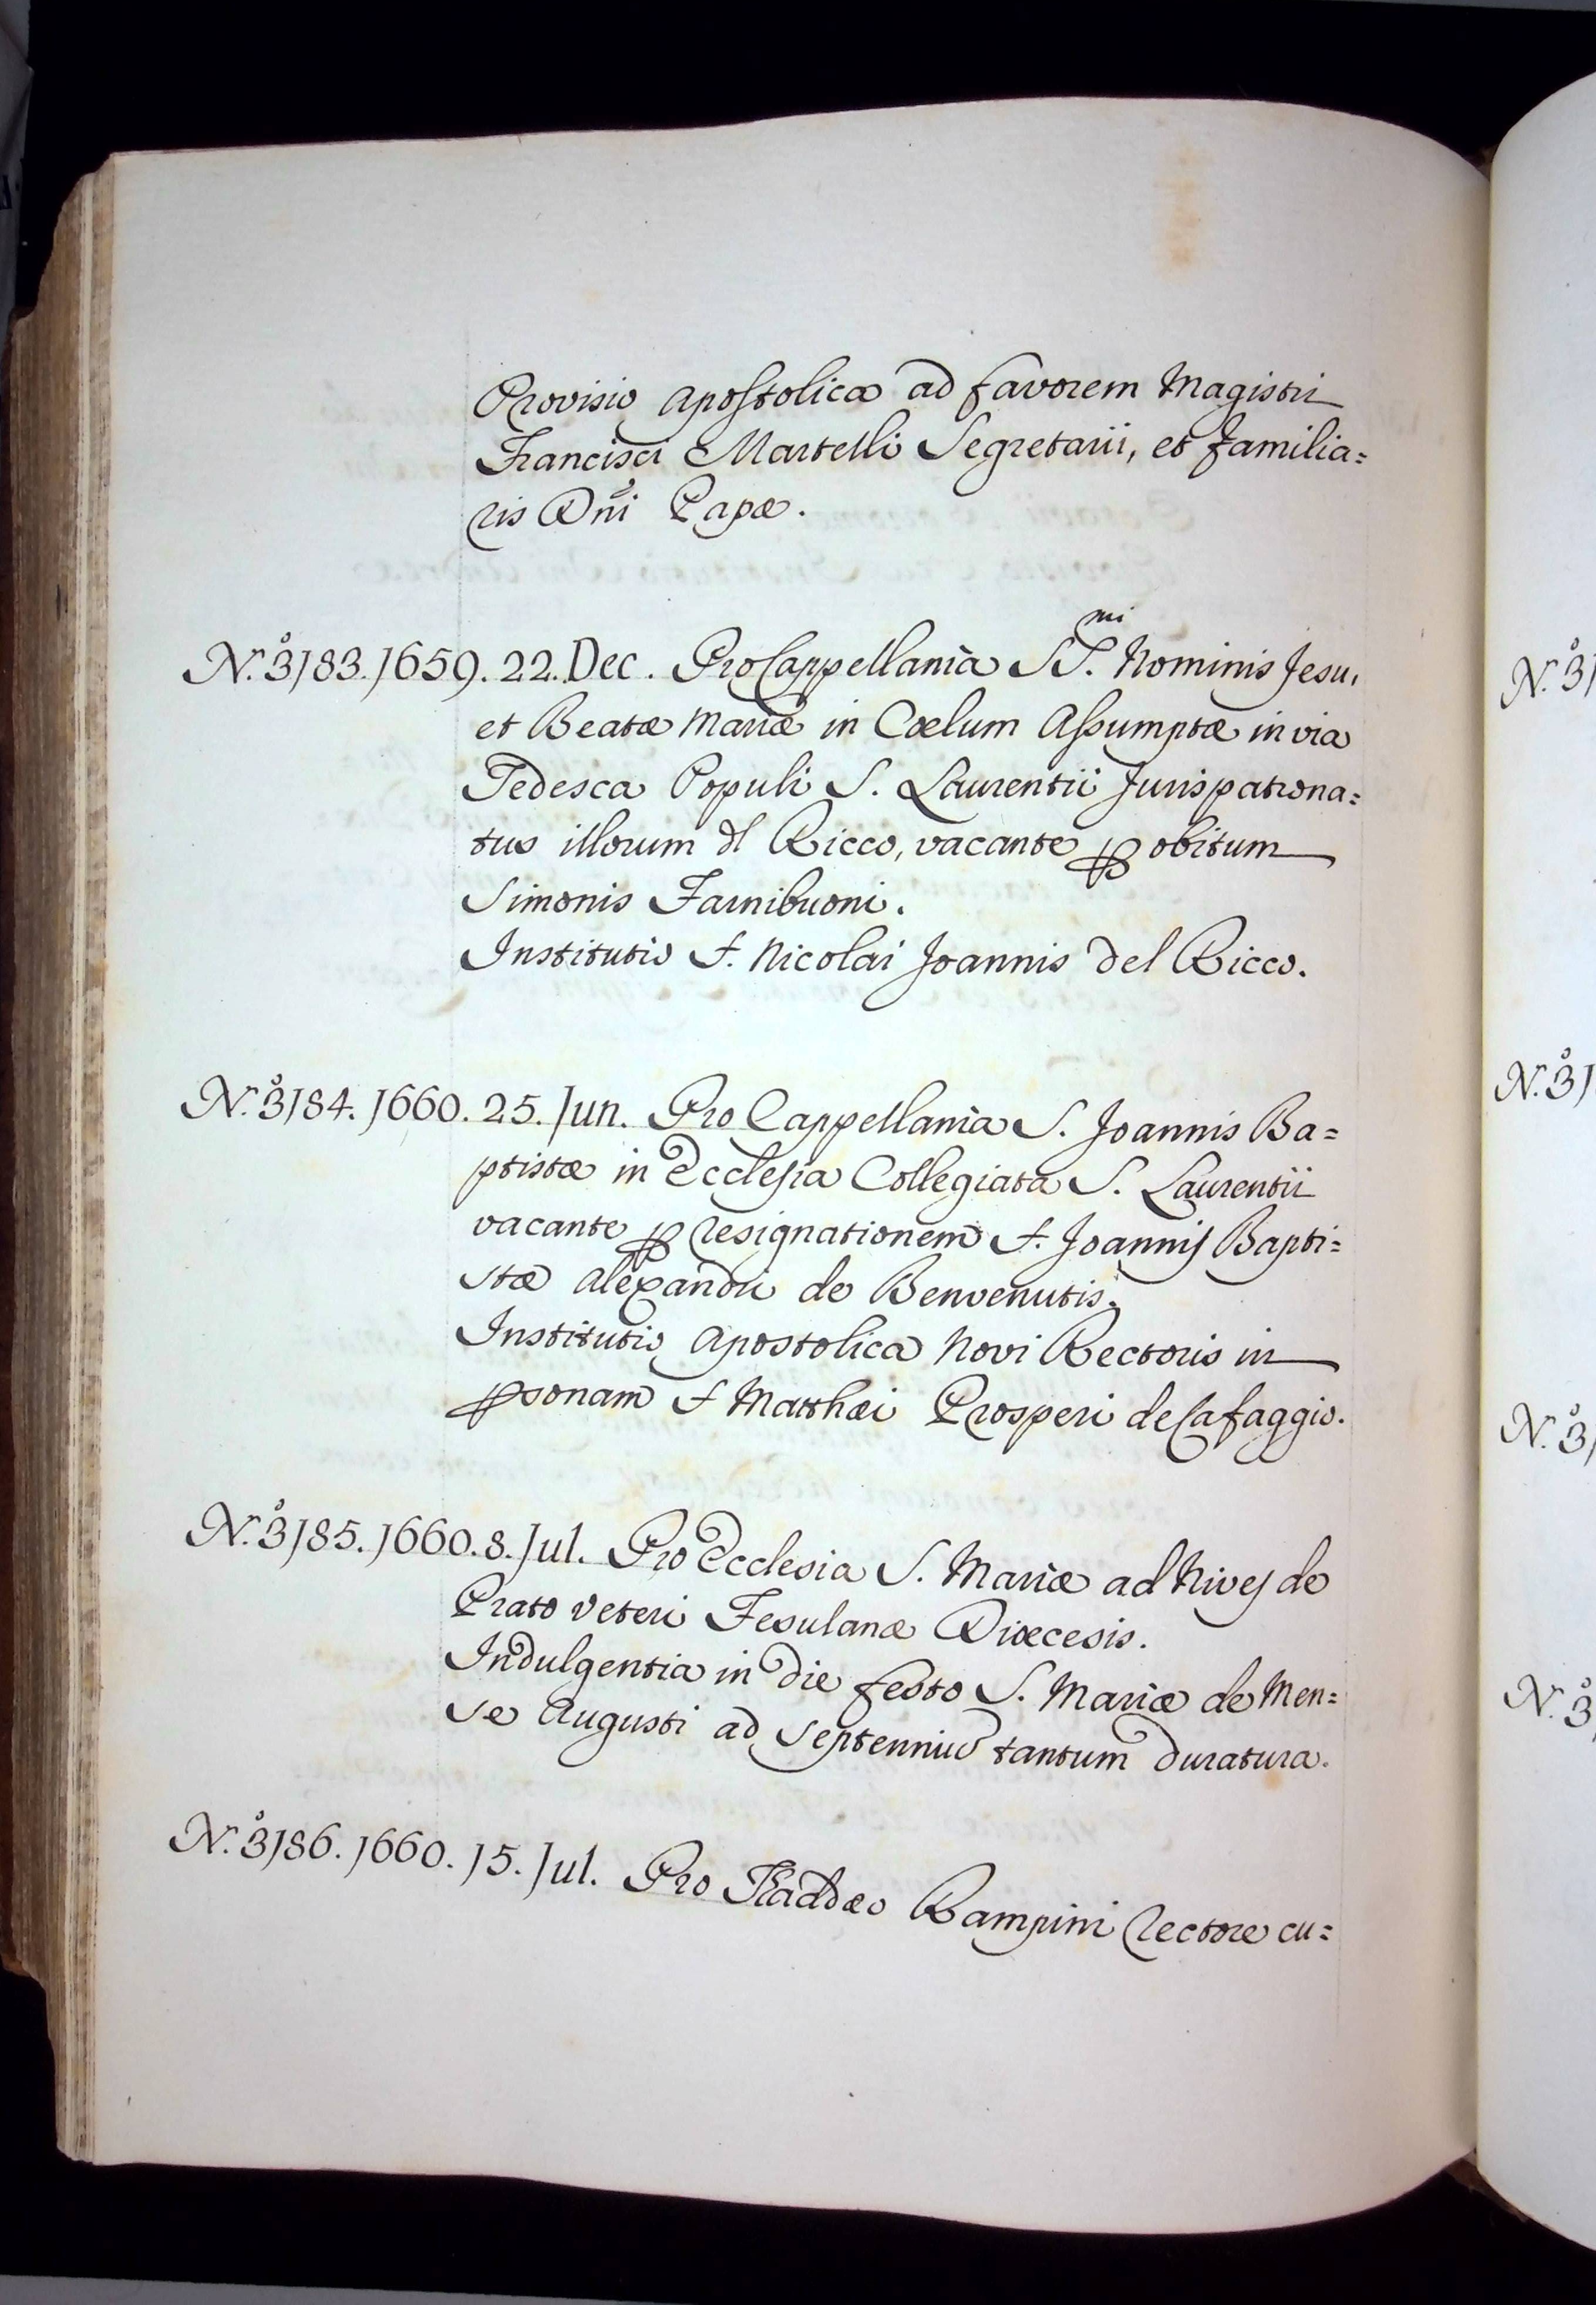 Provisio Apostolica ad favorem Magistri
Francisci Martelli Segretarii, et familia=
ris Dñi Papæ.
N.º 3183. 1659. 22. Dec. Pro Cappellania SS.mi Nominis Jesu,
et Beatæ Mariæ in Cœlum Assumptæ in via
Tedesca Populi S. Laurentii Jurispatrona=
tus illorum dl Ricco, vacante p obitum
Simonis Farnibuoni.
Institutio f. Nicolai Joannis del Ricco.
N.º 3184. 1660. 25. Jun. Pro Cappellania S. Joannis Ba=
ptistæ in Ecclesia Collegiata S. Laurentii
vacante p resignationem f. Joannis Bapti=
stæ Alexandri de Benvenutis.
Institutio Apostolica Novi Rectoris in
psonam f Matthæi Prosperi de Cafaggio.
N.º 3185. 1660. 8. Jul. Pro Ecclesia S. Mariæ ad Nives de
Prato Veteri Fesulanæ Diœcesis.
Indulgentia in die festo S. Mariæ de Men=
se Augusti ad Septenniū tantum duratura.
N.º 3186. 1660. 15. Jul. Pro Thaddæo Rampini Rectore cu=
N.º 31
N.º 31
N.º 3
N.º 3